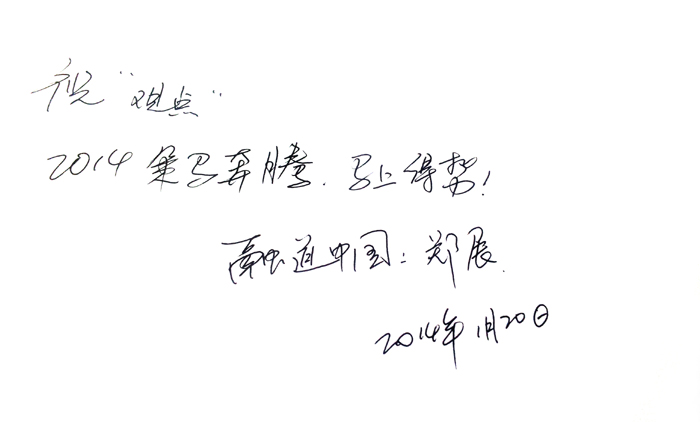 祝“观点”
2014 乘马奔腾.马上得势!
融道中国:郑展.
2014年1月20日